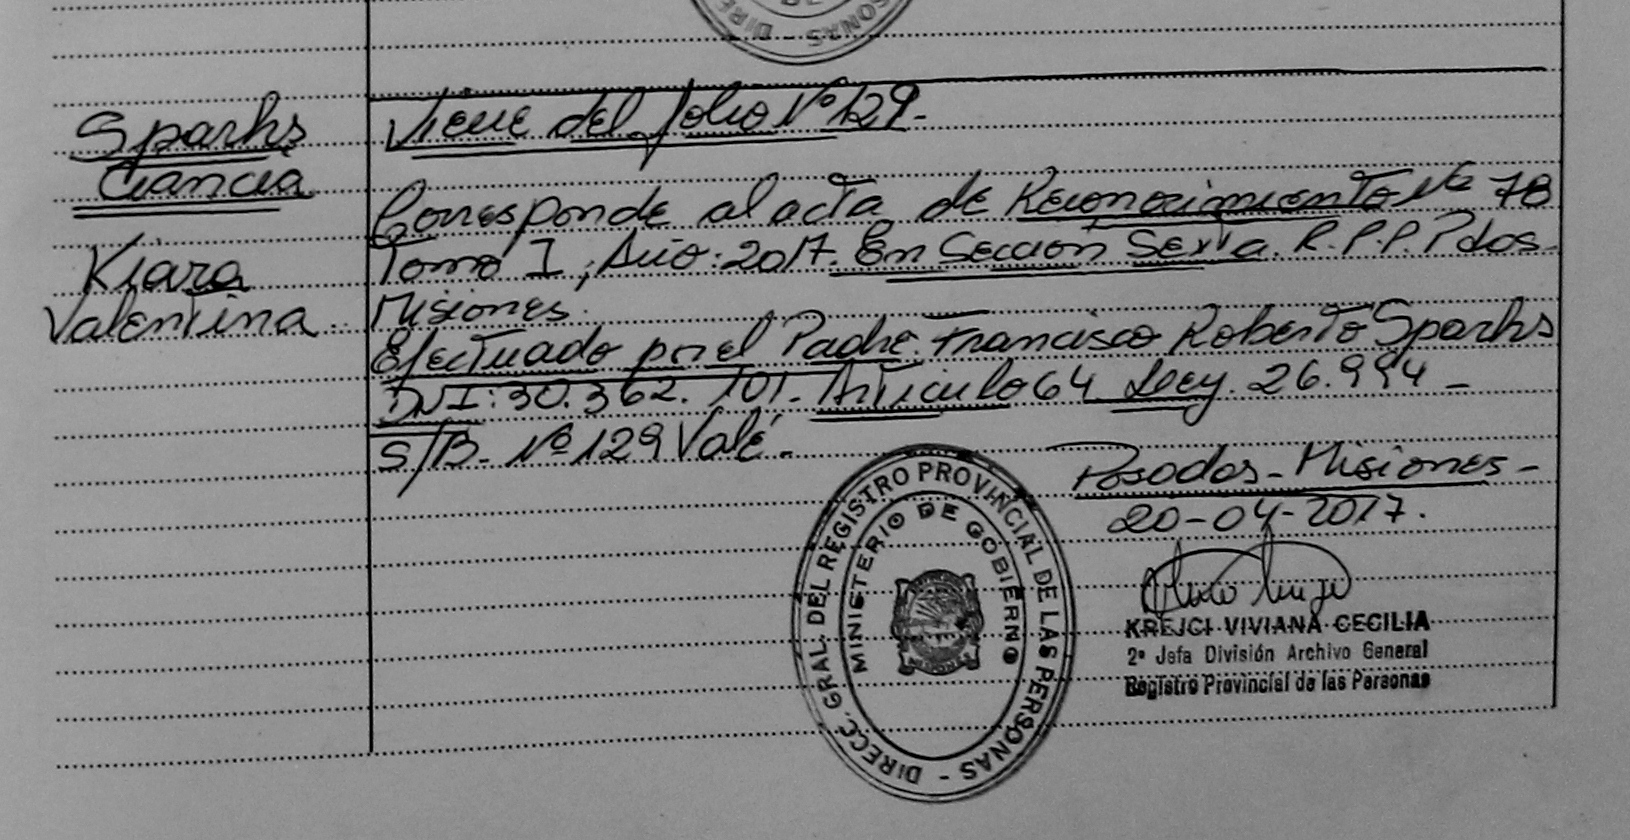 Sparhs
Ciancia
Kiara
Valentina
Viene del folio Nº 129.-
Corresponde al acta de Reconocimiento Nº 78
Tomo I, Año: 2017. En Sección Sexta. R.P.P. Pdos-
Misiones.
Efectuado por el Padre. Francisco Roberto Sparhs
DNI: 30.362.101. Artículo 64 Ley. 26.994-
S/B- Nº 129 Vale.-
Posadas-Misiones-
20-04-2017.
KREJCI VIVIANA CECILIA
2º Jefa División Archivo General
Registro Provincial de las Personas
DIRECC. GRAL. DEL REGISTRO PROVINCIAL DE LAS PERSONAS -
MINISTERIO DE GOBIERNO